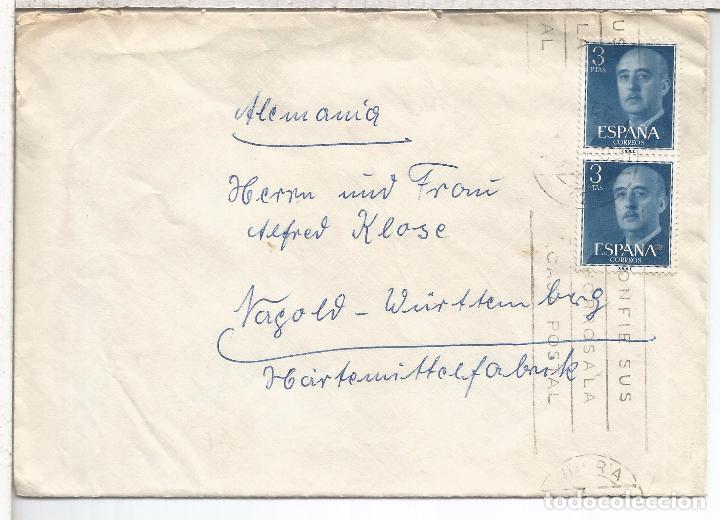 Alemania
Herrn und Frau
Alfred Klose
Nagold - Württemberg
Härtemittelfabrik
3
PTAS
ESPAÑA
CORREOS
3
PTAS
ESPAÑA
CORREOS
CONFIE SUS
A LA
CAJA POSTAL
todocoleccion.net